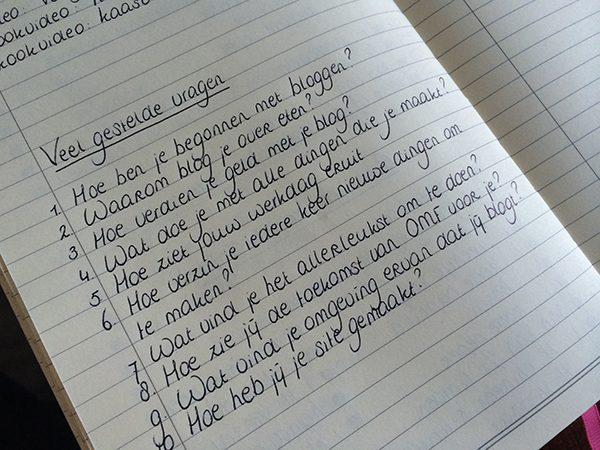 ookvideo:
kookvideo:
Veel gestelde vragen
1. Hoe ben je begonnen met bloggen?
2. Waarom blog je over eten?
3. Hoe verdien je geld met je blog?
4. Wat doe je met alle dingen die je maakt?
5. Hoe ziet jouw werkdag eruit
6. Hoe verzin je iedere keer nieuwe dingen om
te maken?
7. Wat vind je het allerleukst om te doen?
8. Hoe zie jij de toekomst van OMF voor je?
9. Wat vind je omgeving ervan dat jij blogt?
10 Hoe heb jij je site gemaakt?